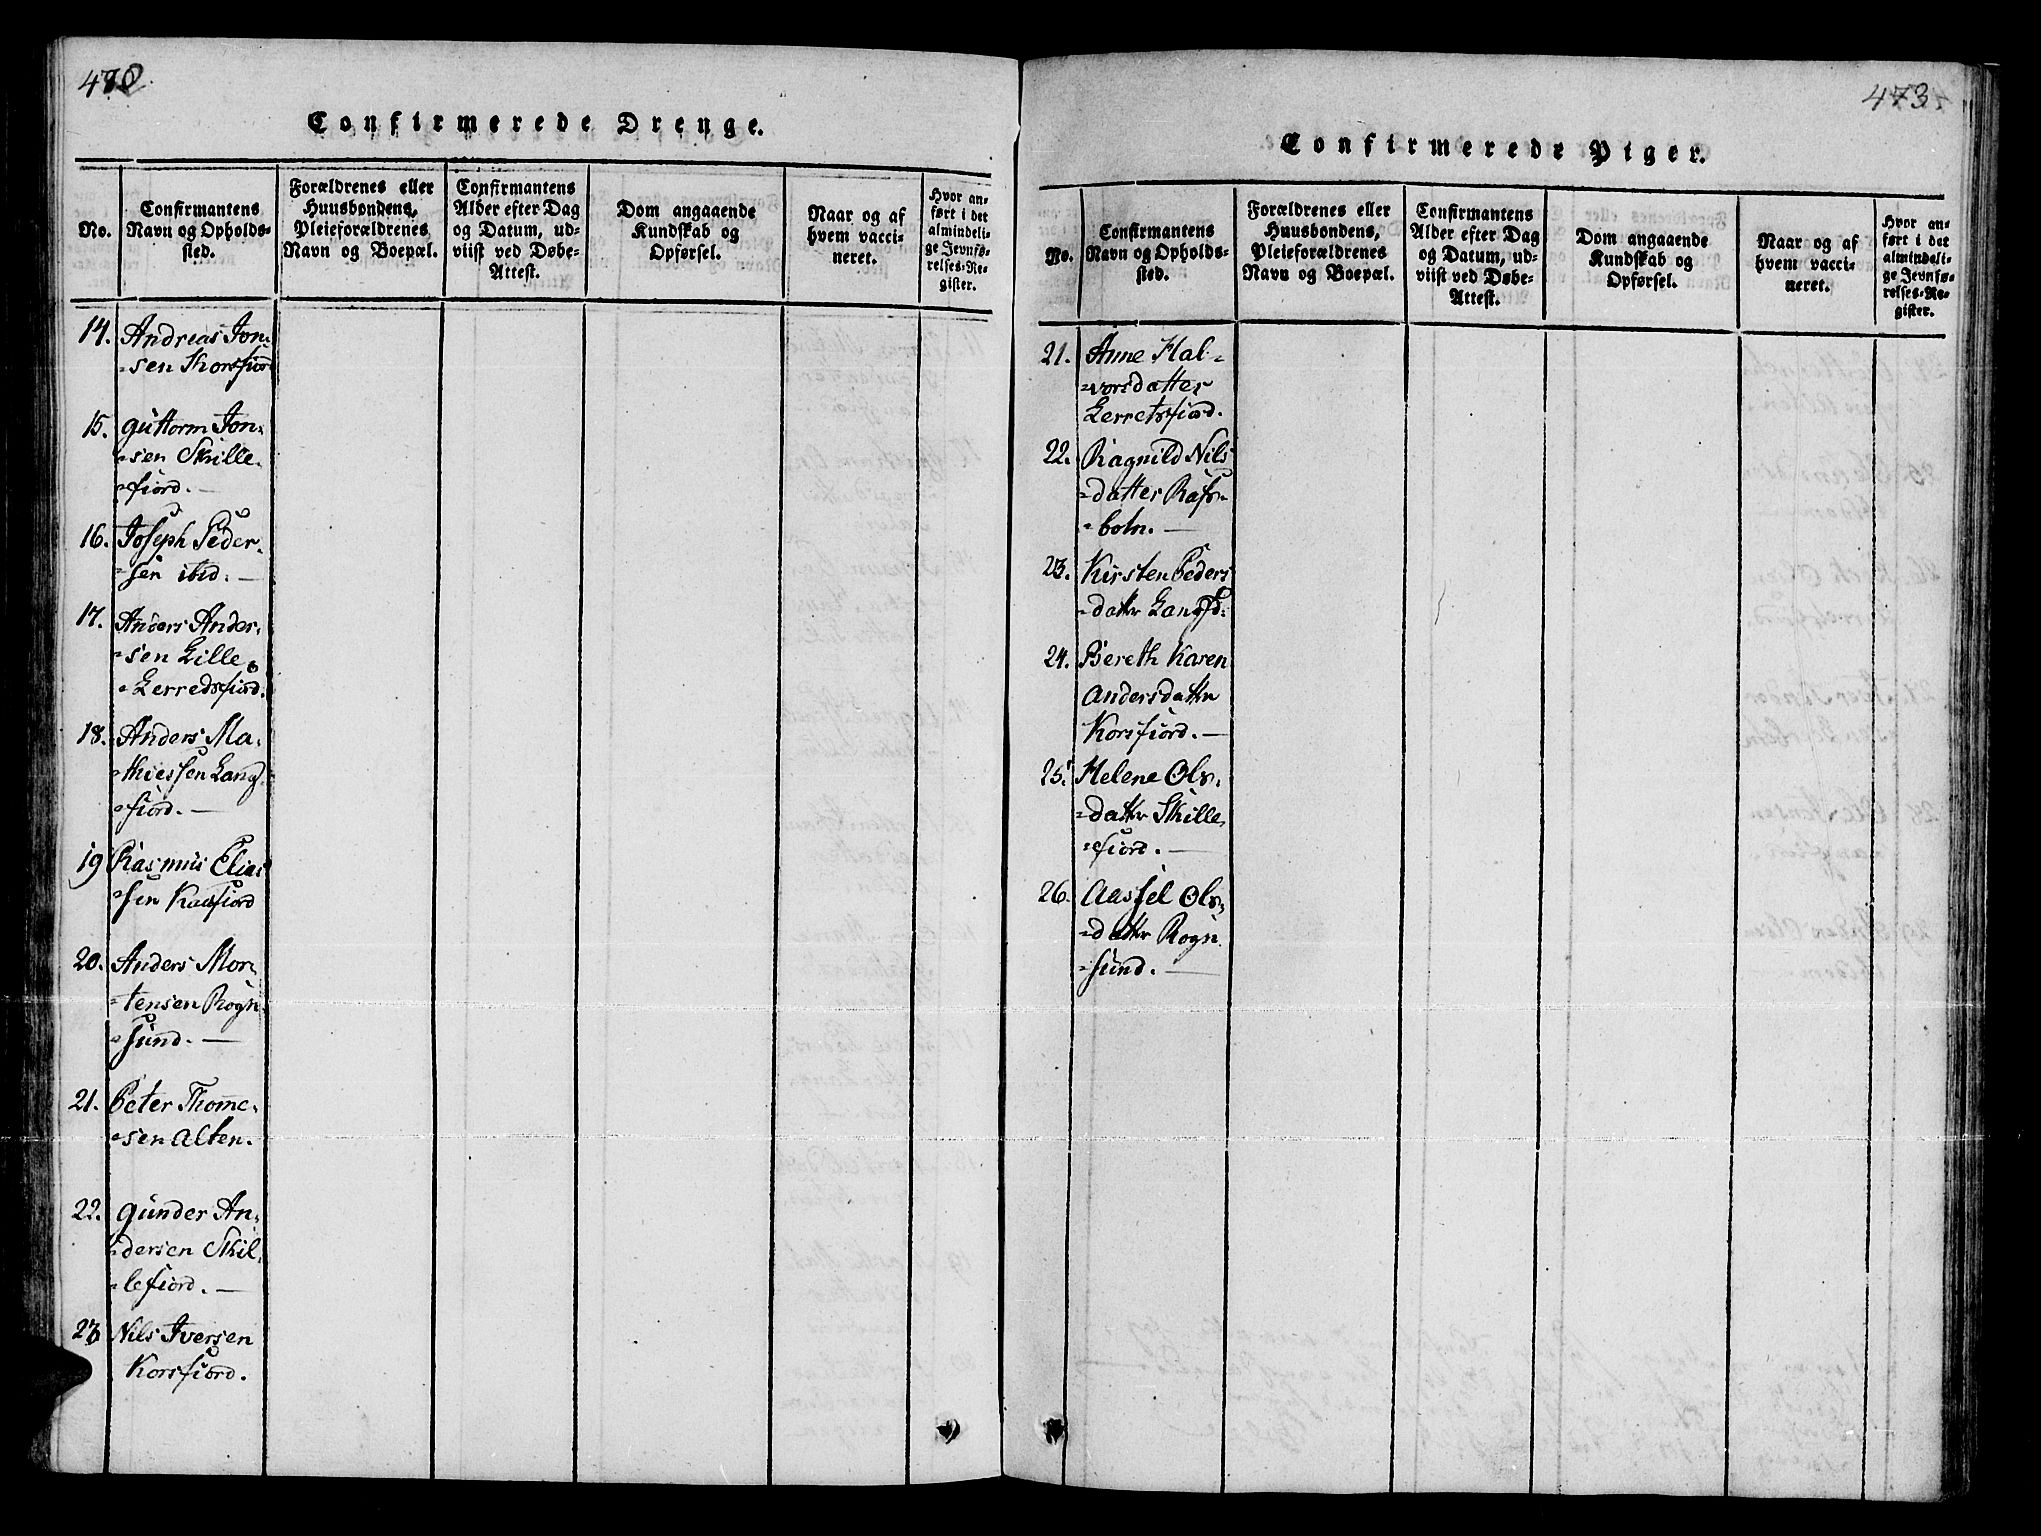 472
Confirmerede Drenge.
No.
Confirmantens
Navn og Opholds-
sted.
Forældrenes eller
Huusbondens,
Pleieforældrenes
Navn og Boepæl.
Confirmantens
Alder efter Dag
og Datum, ud-
viist ved Døbe-
Attest.
Dom angaaende
Kundskab og
Opførsel.
Naar og af
hvem vacci-
neret.
Hvor an-
ført i det
almindeli-
ge Jevnfø-
relses-Re-
gister.
14. Andreas Jon-
sen Korsfiord
15. Guttorm Jon-
sen Skille-
fiord. —
16. Joseph Peder-
sen ibid. —
17. Anders Ander-
sen Lille
Lerredsfiord.
18. Anders Ma-
thiessen Lang-
fiord. —
19 Rasmus Elias
sen Kaafiord
20. Anders Mor-
tensen Rogn-
sund. —
21. Peter Thome-
sen Alten.
22. Gunder An-
dersen Skil-
lefiord. —
23 Nils Iversen
Korsfiord.
473
Confirmerede Piger.
No.
Confirmantens
Navn og Opholds-
sted.
Forældrenes eller
Huusbondens,
Pleieforældrenes
Navn og Boepæl.
Confirmantens
Alder efter Dag
og Datum, ud-
viist ved Døbe-
Attest.
Dom angaaende
Kundskab og
Opførsel.
Naar og af
hvem vacci-
neret.
Hvor an-
ført i det
almindeli-
ge Jevnfø-
relses-Re-
gister.
21. Anne Hal-
vorsdatter
Lerretsfiord.
22. Ragnild Nils
datter Rafs-
botn. —
23. Kirsten Peders
datter Langfd:
24. Bereth Karen
Andersdatter
Korsfiord. —
25. Helene Ols-
datter Skille-
fiord. —
26. Aassel Ols-
datter Rogn-
sund. —